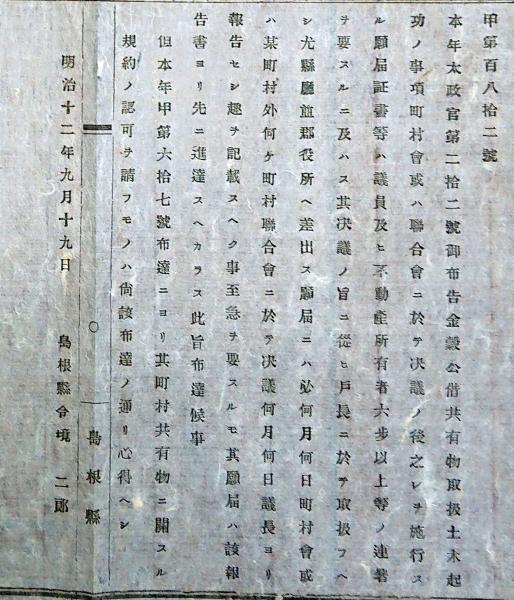 甲第百八拾二號
本年太政官第二拾二號御布告金穀公借共有物取扱土木起
功ノ事項町村會或ハ聯合會ニ於テ決議ノ後之レヲ施行ス
ル願届証書等ハ議員及ヒ不動産所有者六歩以上等ノ連署
ヲ要スルニ及ハス其決議ノ旨ニ從ヒ戸長ニ於テ取扱フヘ
シ尤縣廳並郡役所ヘ差出ス願届ニハ必何月何日町村會或
ハ某町村外何ケ町村聯合會ニ於テ決議何月何日議長ヨリ
報告セシ趣ヲ記載スヘク事至急ヲ要スルモ其願届ハ該報
告書ヨリ先ニ進達スヘカラス此旨布達候事
但本年甲第六拾七號布達ニヨリ其町村共有物ニ關スル
規約ノ認可ヲ請フモノハ尚該布達ノ通リ心得ヘシ
○ 島根縣
明治十二年九月十九日 島根縣令境 二郎